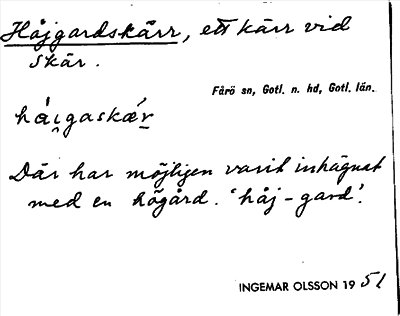 Håjgardskärr, ett kärr vid
Skär.
Fårö sn, Gotl. n. hd, Gotl. län.
hái̯gaskǽr
Där har möjligen varit inhägnat
med en högård. 'håj-gard'.
INGEMAR OLSSON 1951